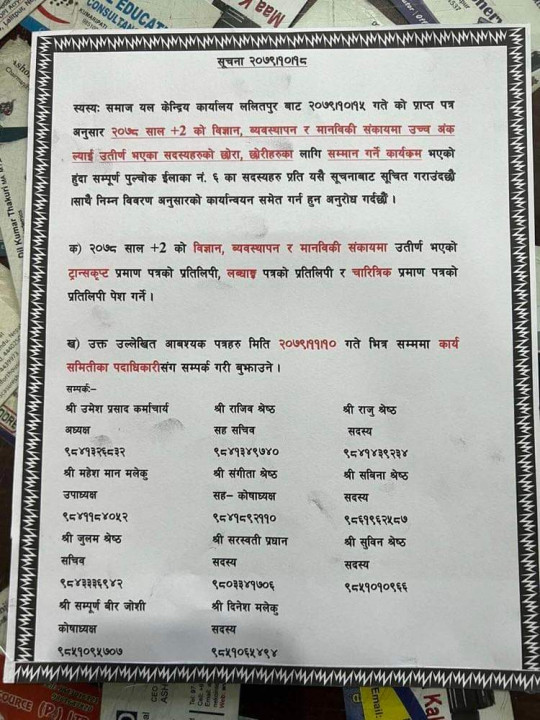 EDUCAT
CONSULTAN
Maa K
सूचना २०७९।१०।१८
स्यस्यः समाज यल केन्द्रिय कार्यालय ललितपुर बाट २०७९।१०।१५ गते को प्राप्त पत्र
अनुसार २०७८ साल +2 को विज्ञान, ब्यवस्थापन र मानविकी संकायमा उच्च अंक
ल्याई उतीर्ण भएका सदस्यहरुको छोरा, छोरीहरुका लागि सम्मान गर्ने कार्यकम भएको
हुंदा सम्पूर्ण पुल्चोक ईलाका नं. ६ का सदस्यहरु प्रति यसै सूचनाबाट सूचित गराउंदछौ
।साथै निम्न बिबरण अनुसारको कार्यान्वयन समेत गर्न हुन अनुरोध गर्दछौं ।
क) २०७८ साल +2 को विज्ञान, ब्यवस्थापन र मानविकी संकायमा उतीर्ण भएको
ट्रान्सकृप्ट प्रमाण पत्रको प्रतिलिपी, पत्रको प्रतिलिपी र चारित्रिक प्रमाण पत्रको
प्रतिलिपी पेश गर्ने ।
ख) उक्त उल्लेखित आबश्यक पत्रहरु मिति २०७९।११।१० गते भित्र सम्ममा कार्य
समितीका पदाधिकारीसंग सम्पर्क गरी बुझाउने ।
सम्पर्कः–
श्री उमेश प्रसाद कर्माचार्य श्री राजिव श्रेष्ठ श्री राजु श्रेष्ठ
अध्यक्ष सह सचिव सदस्य
९८४१३२६८३२ ९८४१३४९७४० ९८४१४३९२३४
श्री महेश मान मलेकु श्री संगीता श्रेष्ठ श्री सबिना श्रेष्ठ
उपाध्यक्ष सह– कोषाध्यक्ष सदस्य
९८४११८४०५२ ९८४१८९२११० ९८६१९६२५८७
श्री जुलम श्रेष्ठ श्री सरस्वती प्रधान श्री सुविन श्रेष्ठ
सचिव सदस्य सदस्य
९८४३३३६९४२ ९८०३३४१७०६ ९८५१०१०९६६
श्री सम्पूर्ण बीर जोशी श्री दिनेश मलेकु
कोषाध्यक्ष सदस्य
९८५१०९५७०७ ९८५१०६५४९४